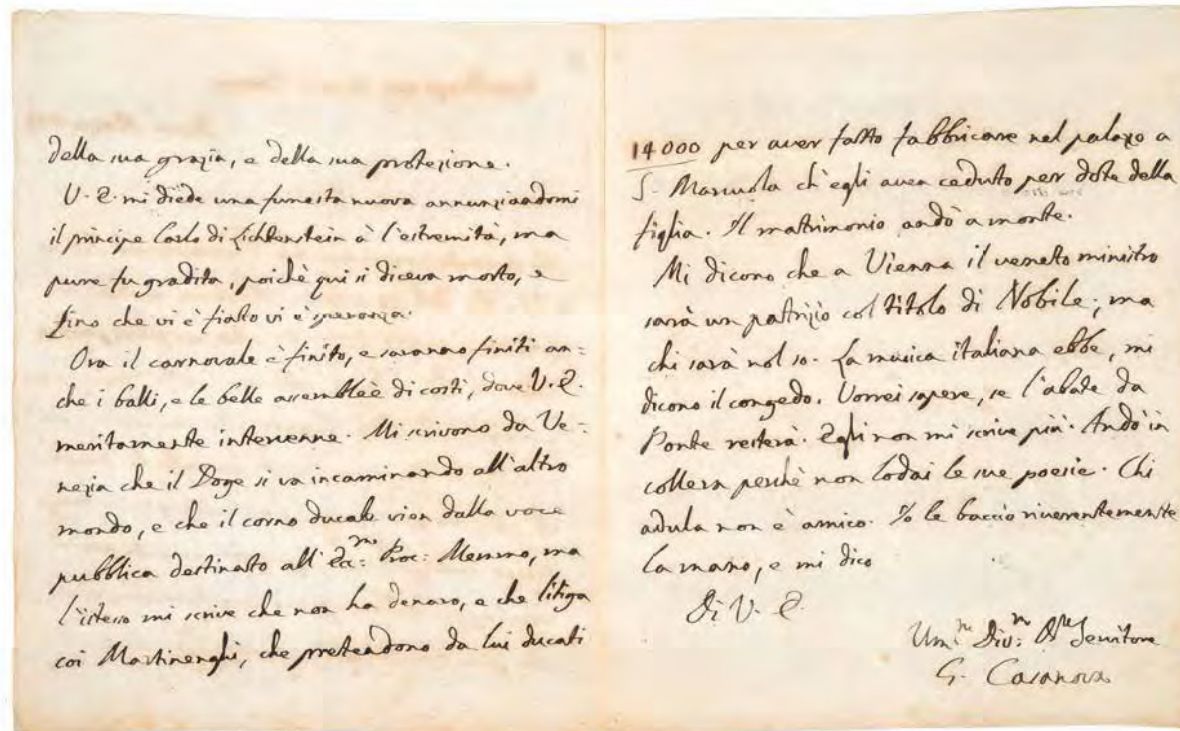 della sua grazia, e della sua protezione.
V. E. mi diède una funesta nuova annunziandomi
il principe Carlo di Lichtenstein à l'estremità, ma
pure fu gradita, poichè qui si diceva morto, e
fino che vi è fiato vi è speranza.
Ora il carnovale è finito, e saranno finiti an=
che i balli, e le belle assemblèe di costì, dove V. E.
meritamente intervenne. Mi scrivono da Ve=
nezia che il Doge si va incaminando all'altro
mondo, e che il corno ducale vien dalla voce
pubblica destinato all' Ec:mo Proc: Memmo, ma
l'istesso mi scrive che non ha denaro, e che litiga
coi Martinenghi, che pretendono da lui ducati
14000 per aver fatto fabbricare nel palazo a
S. Marcuola ch'egli avea ceduto per dote della
figlia. Il matrimonio andò a monte.
Mi dicono che a Vienna il veneto ministro
sarà un patrizio col titolo di Nobile; ma
chi sarà nol so. La musica italiana ebbe, mi
dicono il congedo. Vorrei sapere, se l'abate da
Ponte resterà. Egli non mi scrive più. Andò in
collera perchè non lodai le sue poesie. Chi
adula non è amico. Io le baccio riverentemente
la mano, e mi dico
Di V. E.
Um:mo Div:mo Servitore
G. Casanova